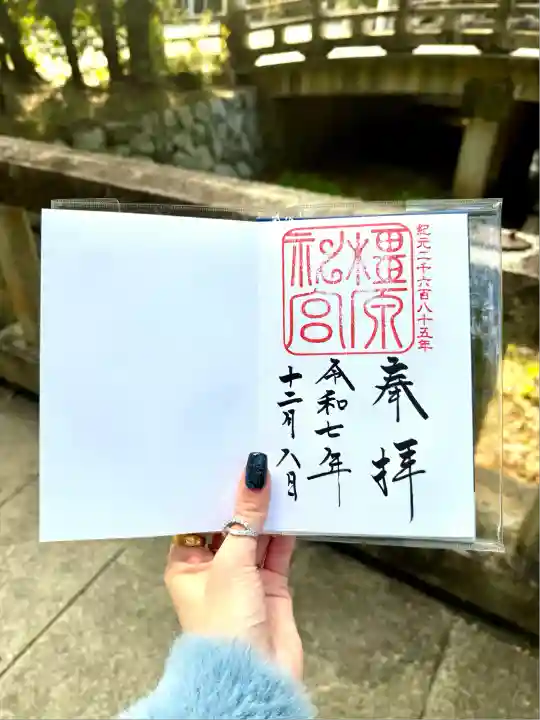 紀元二千六百八十五年
橿原
神宮
奉拝
令和七年
十二月八日